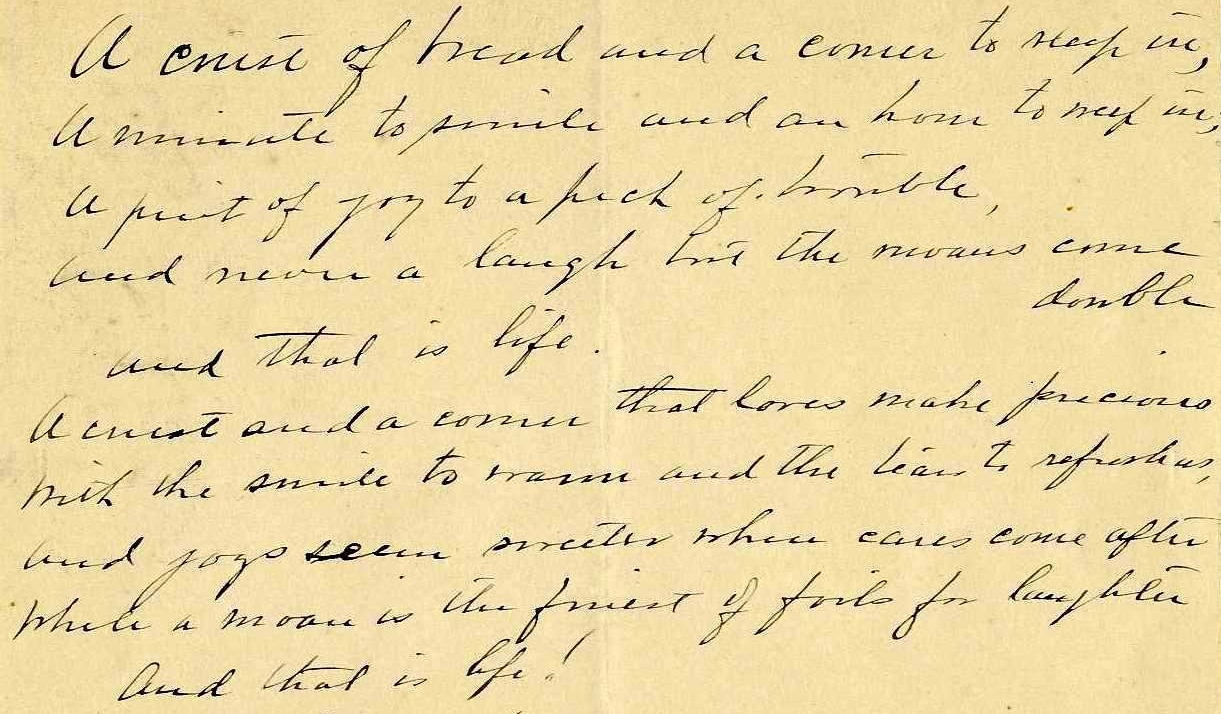 A crust of bread and a corner to sleep in,
A minute to smile and an hour to weep in,
A pint of joy to a peck of trouble,
And never a laugh but the moans come
double
and that is life.
A crust and a corner that loves make precious
With the smile to warm and the tears to refresh us,
And joys seem sweeter when cares come after
While a moan is the finest of foils for laughter
And that is life!